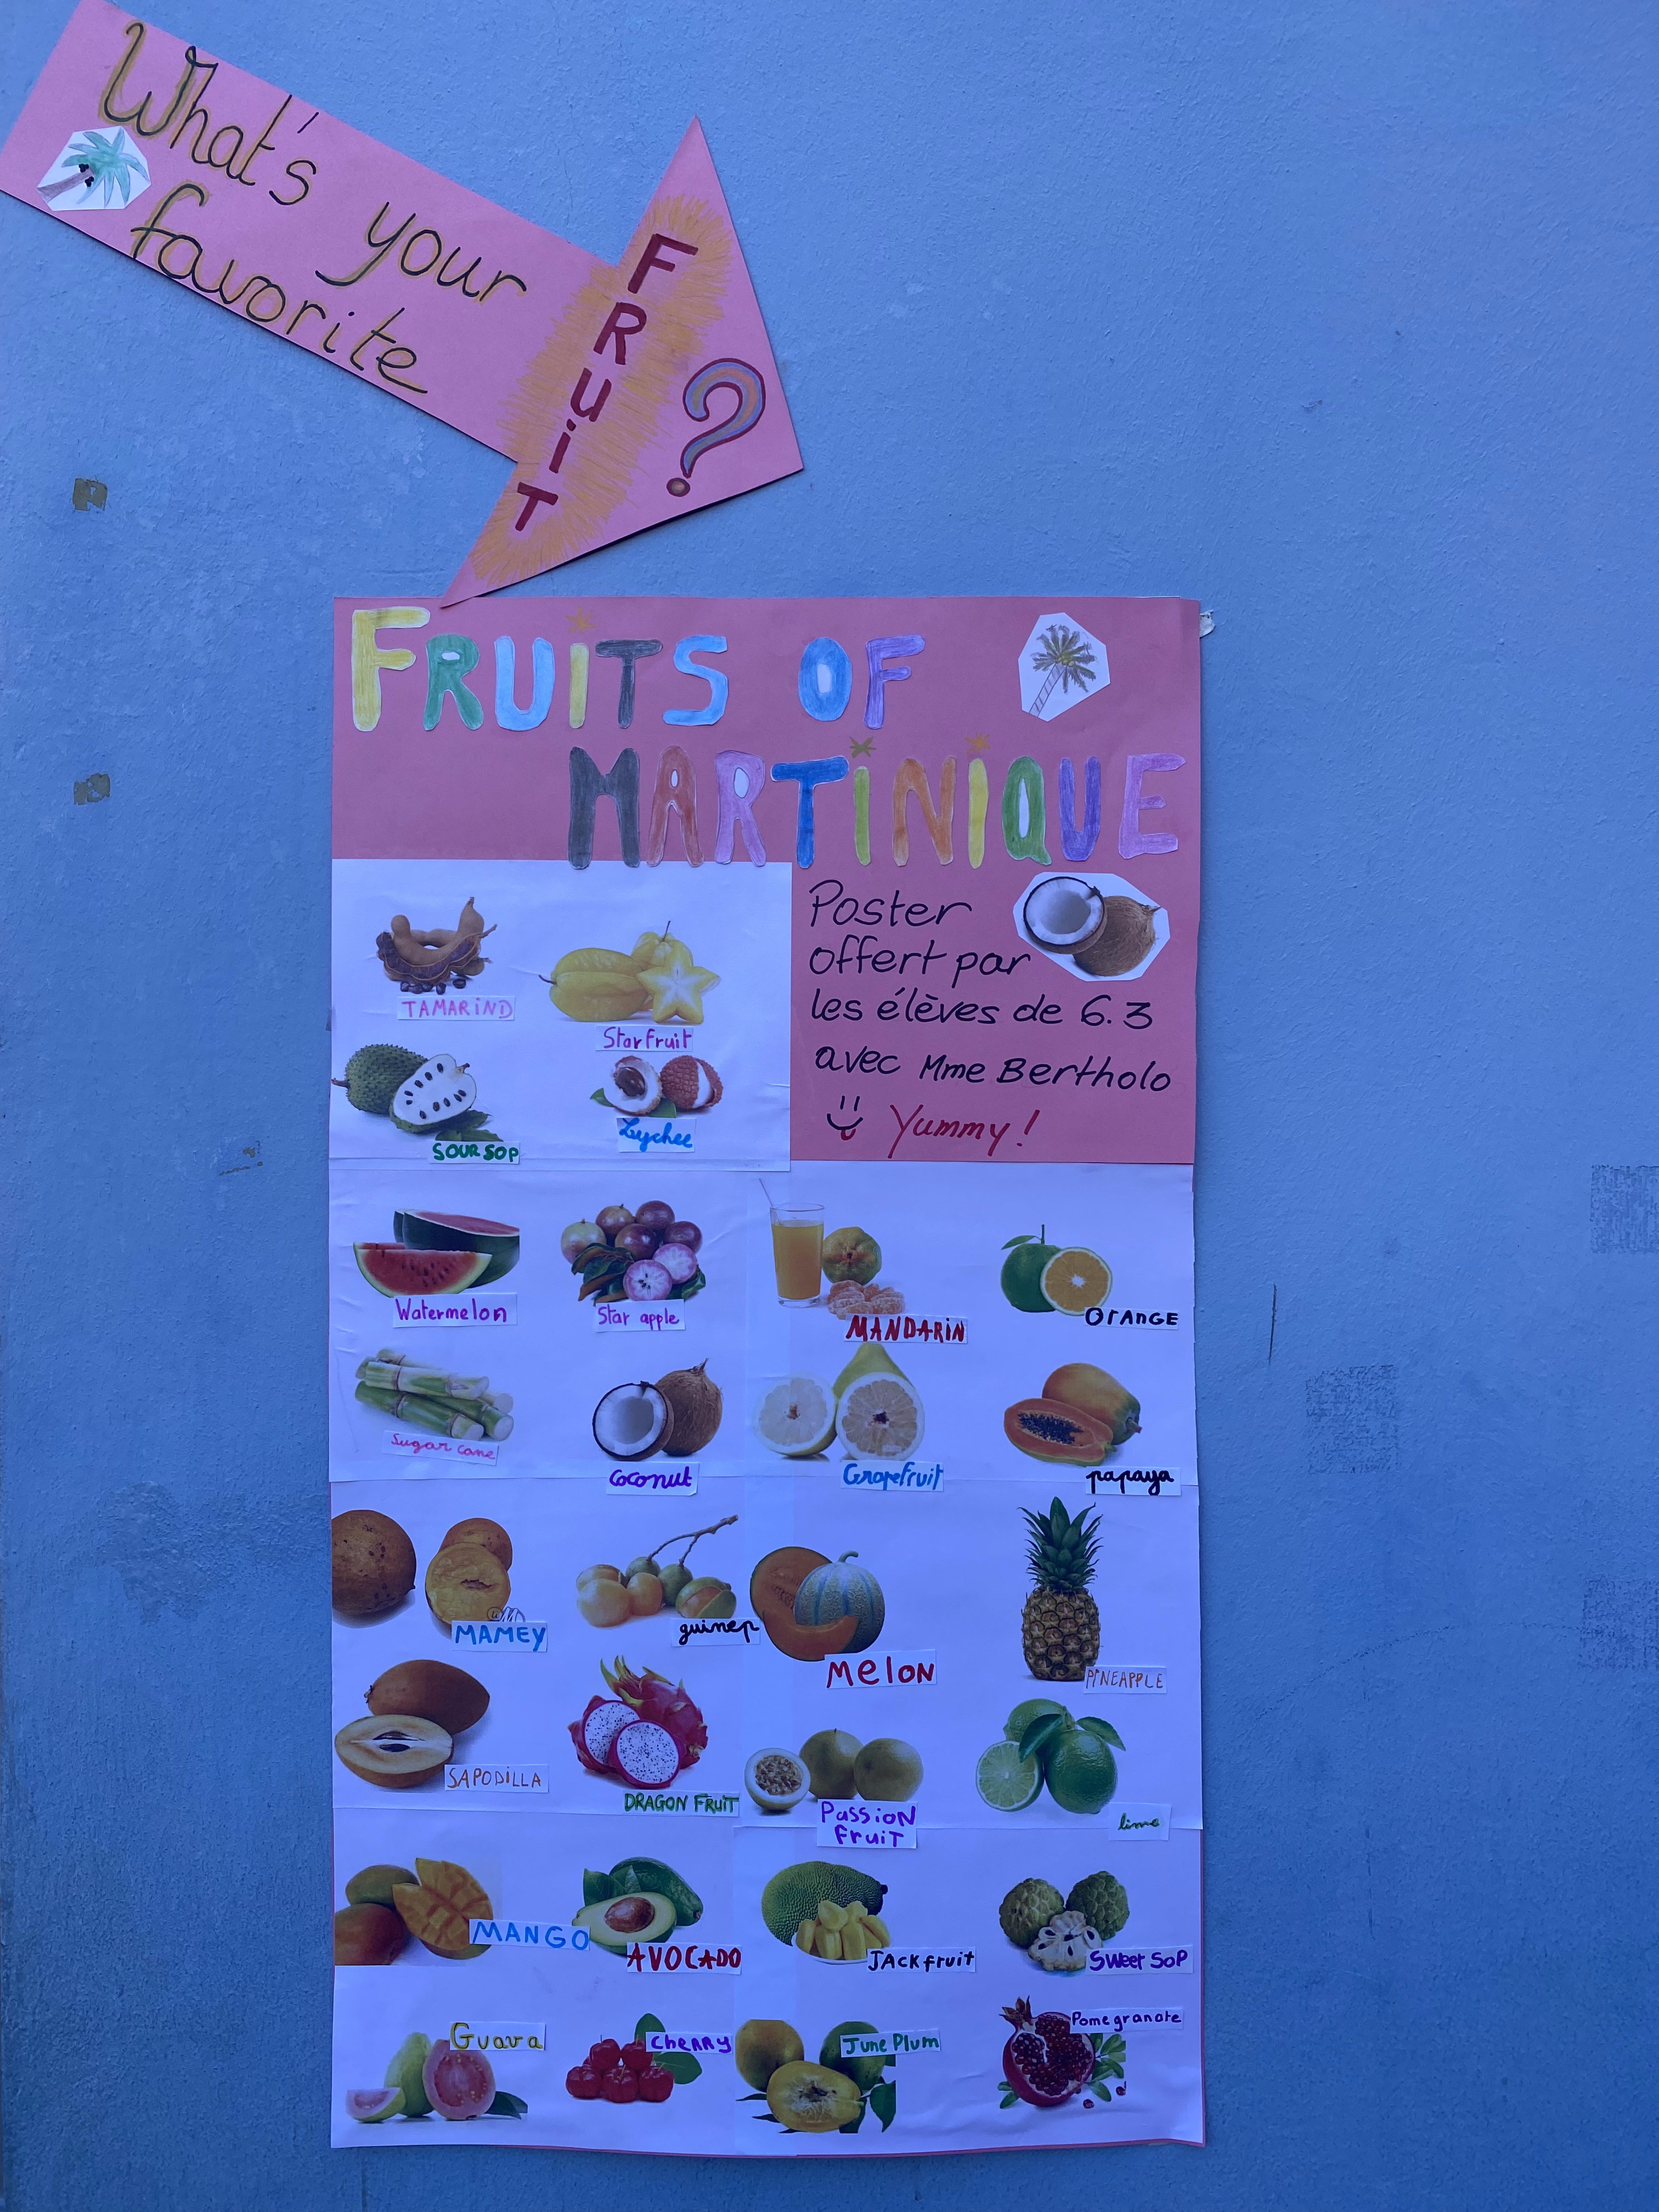 What's your
favorite
FRUiT
?
FRUiTS OF
MARTiNiQUE
Poster
offert par
les élèves de 6.3
avec Mme Bertholo
Yummy!
TAMARiND
Starfruit
SOUR SOP
Lychee
Watermelon
Star apple
MANDARiN
OrAnGE
Sugar cane
Coconut
Grapefruit
papaya
MAMEY
guinep
MelON
PiNEAPPLE
SAPODiLLA
DRAGON FRUiT
PassioN
fruiT
lime
MANGO
AVOCADO
JACKfruit
SWeet SoP
Guava
CheRRy
June Plum
Pomegranate